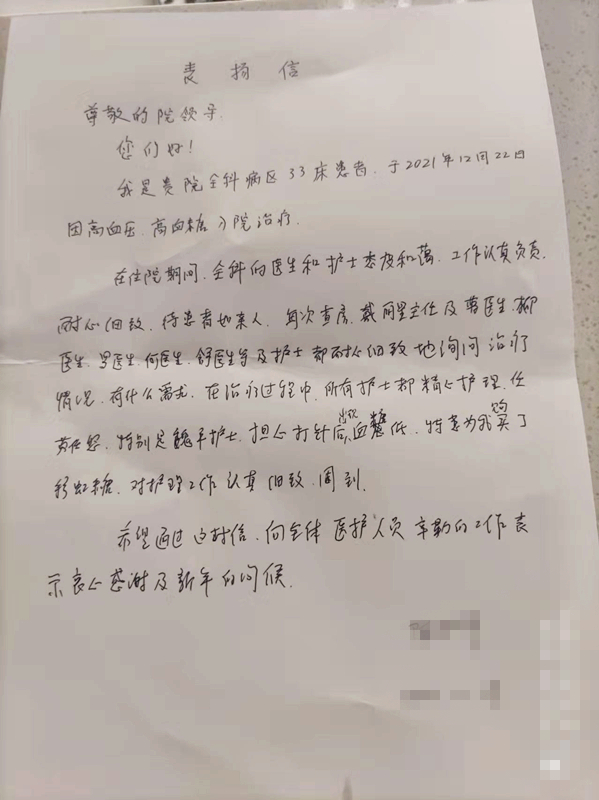 表扬信
尊敬的院领导.
您们好!
我是贵院全科病区33床患者.于2021年12月22日
因高血压.高血糖入院治疗.
在住院期间.全科的医生和护士态度和蔼.工作认真负责.
耐心细致.待患者如亲人.每次查房.戴丽星主任及曹医生.柳
医生.罗医生.何医生.舒医生等及护士都耐心细致地询问治疗
情况.有什么需求.在治疗过程中.所有护士都精心护理.任
劳任怨.特别是魏平护士.担心打针后出现血糖低.特意为我购买了
彩虹糖.对护理工作认真细致.周到.
希望通过这封信.向全体医护人员辛勤的工作表
示衷心感谢及新年的问候.